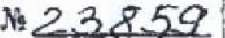 № 23859